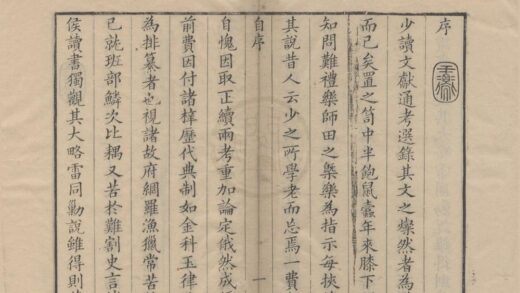 序
少讀文獻通考選錄其文之燦然者為
而已矣置之笥中半飽鼠蠹年來膝下
知問難禮樂師田之槩樂為指示每挾
其說昔人云少之所學老而忘焉一費
自序 一
自愧因取正續兩考重加論定俄然成
前費因付諸梓歷代典制如金科玉律
為排纂者也視諸故府網羅漁獵常苦
已就班部鱗次比耦又苦於難割史言
侯讀書獨觀其大略雷同勦說雖得則